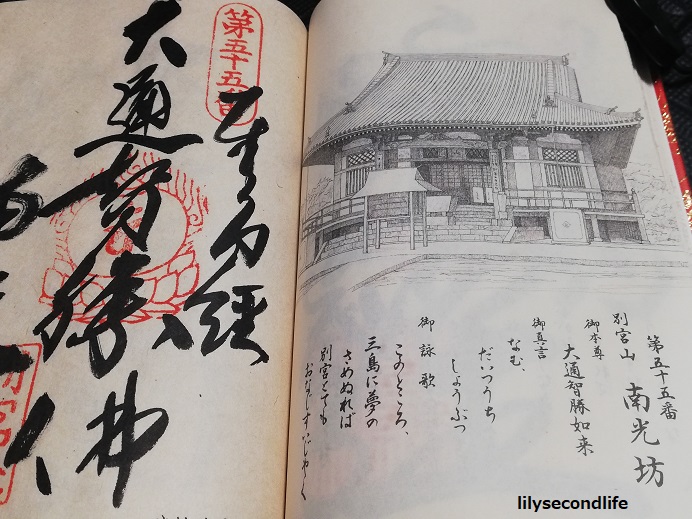 第五十五番
別宮山
南光坊
御本尊
大通智勝如来
御真言
なむ、
だいつうち
しょうぶつ
御詠歌
このところ、
三島に夢の
さめぬれば
別宮とても
おなじすいじゃく
第五十五番
奉納經
大通智勝佛
lilysecondlife